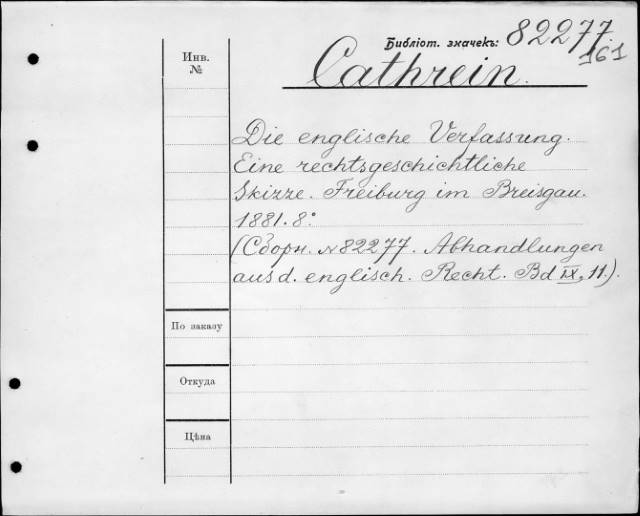 Библіот. значекъ: 82277.
161
Инв.
№
Cathrein.
Die englische Verfassung.
Eine rechtsgeschichtliche
Skizze. Freiburg im Breisgau.
1881. 8º
(Сборн. №82277. Abhandlungen
aus d. englisch. Recht. Bd IX, 11.).
По заказу
Откуда
Цѣна